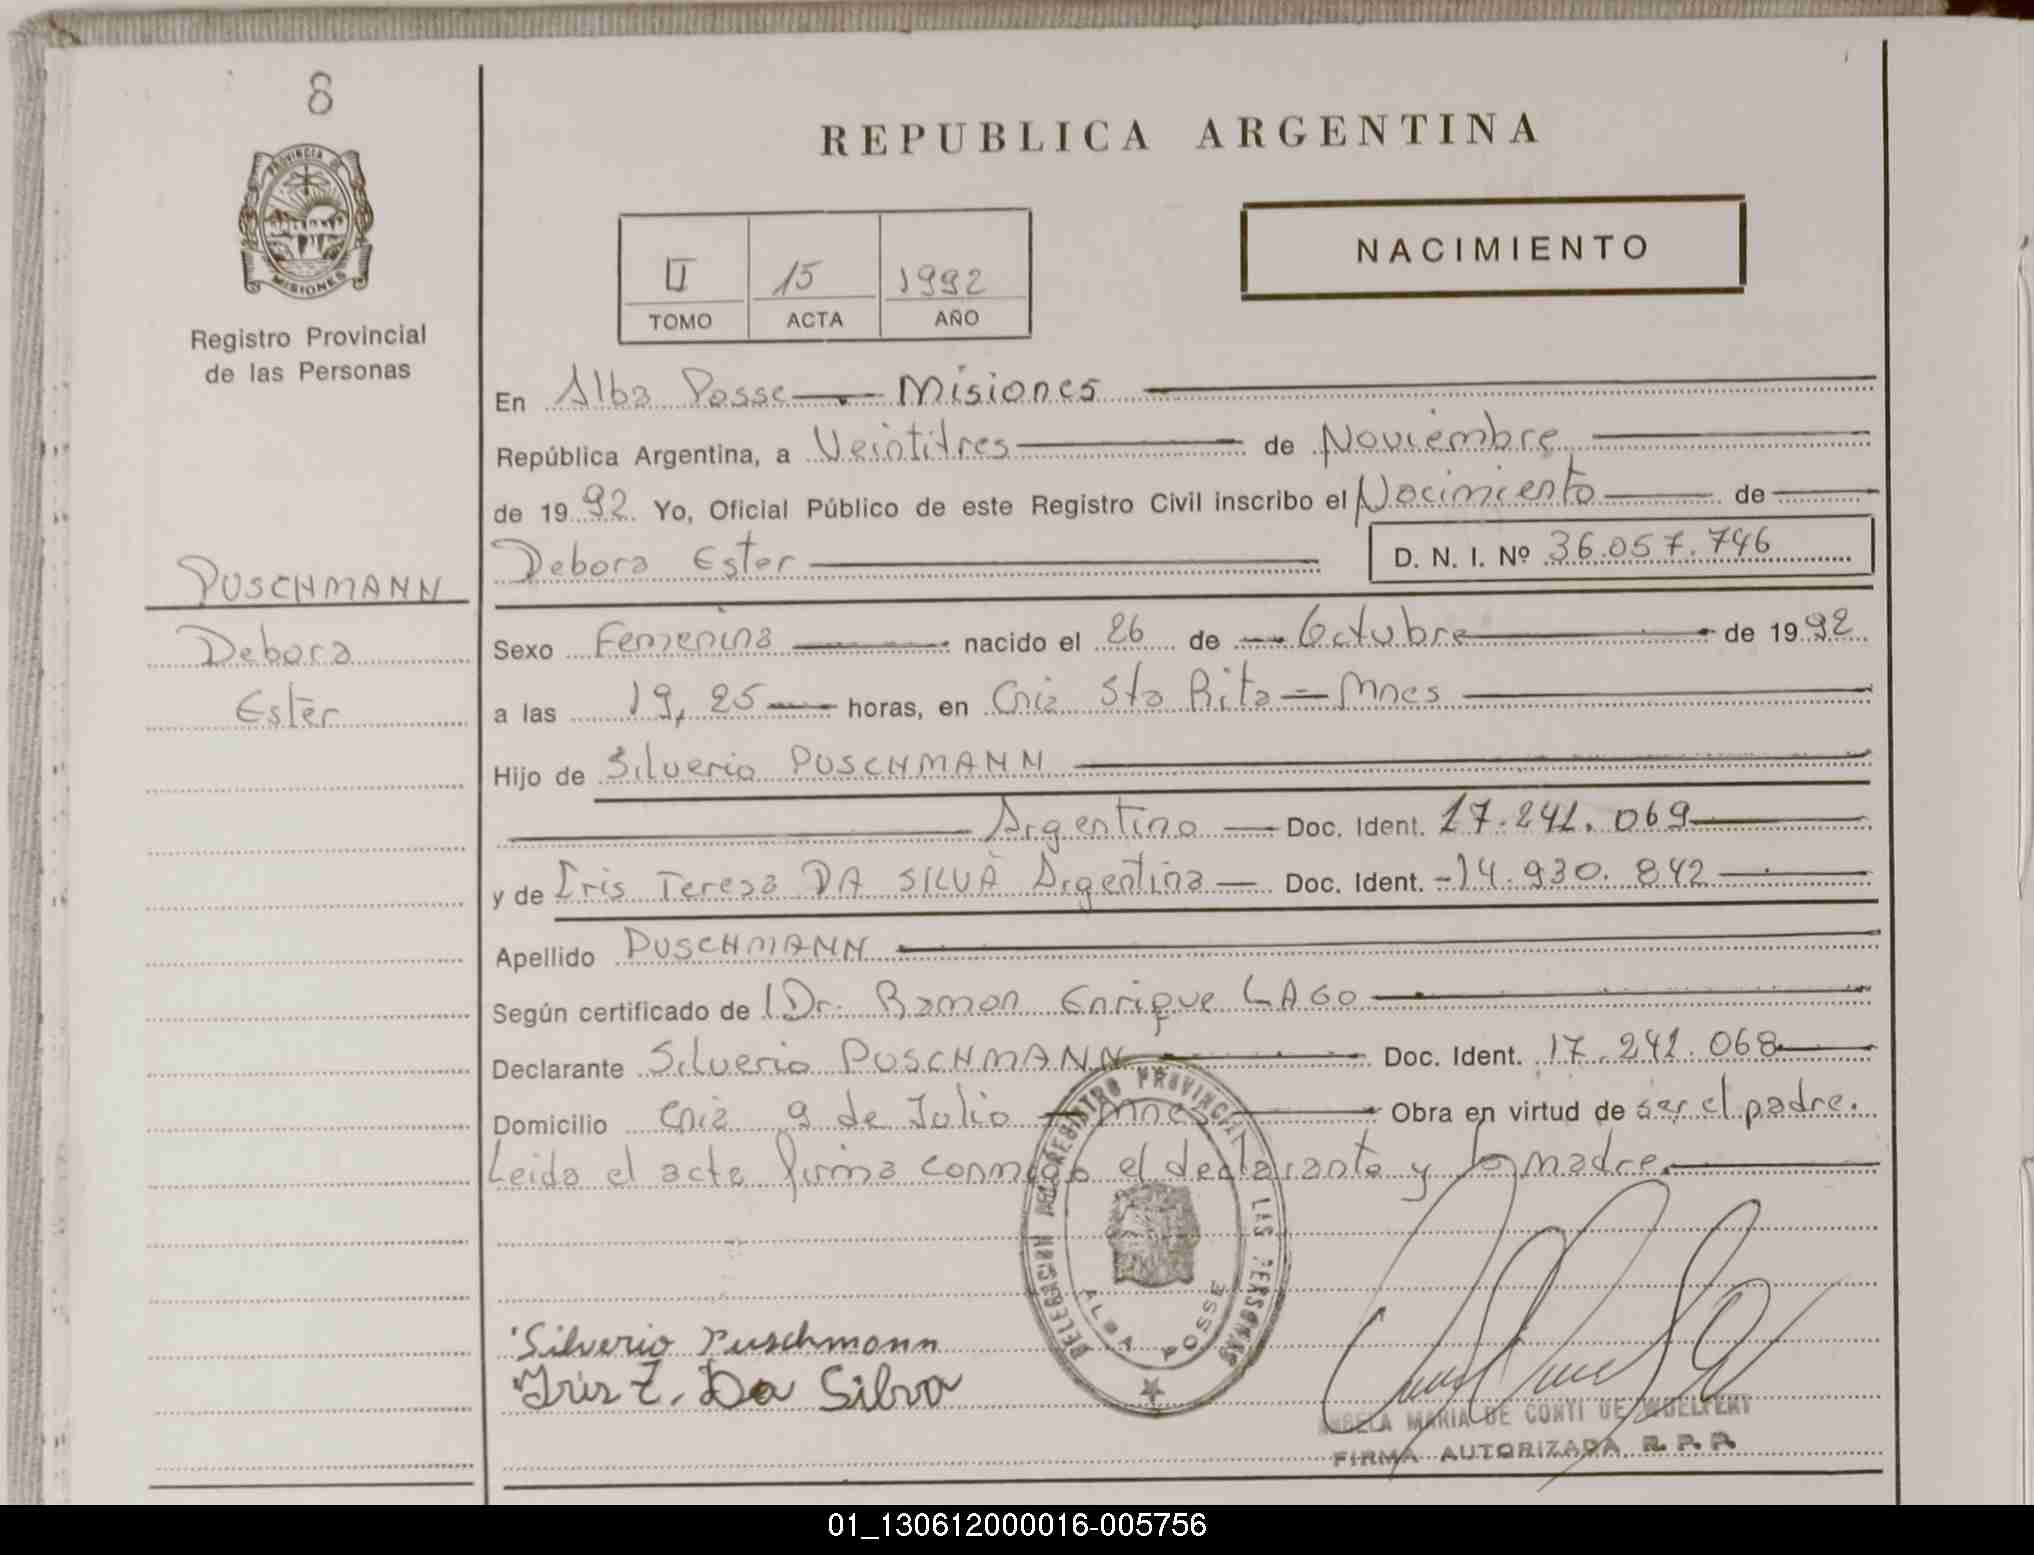 8
PROVINCIA DE
MISIONES
Registro Provincial
de las Personas
REPUBLICA ARGENTINA
NACIMIENTO
II 15 1992
TOMO ACTA AÑO
En Alba Posse — Misiones
República Argentina, a Veintitres de Noviembre
de 1992. Yo, Oficial Público de este Registro Civil inscribo el Nacimiento de
Debora Ester D. N. I. Nº 36.057.746
PUSCHMANN
Debora
Ester
Sexo Femenina nacido el 26 de Octubre de 1992
a las 19,25 horas, en Cnia Sta Rita = Mnes
Hijo de Silverio PUSCHMANN
Argentino Doc. Ident. 17.241.069
y de Iris Teresa DA SILVA Argentina Doc. Ident. 14.930.842
Apellido PUSCHMANN
Según certificado de Dr. Ramon Enrique LAGO
Declarante Silverio PUSCHMANN Doc. Ident. 17.241.068
Domicilio Cnia 9 de Julio - Mnes Obra en virtud de ser el padre.
Leida el acta firma conmigo el declarante y la madre.
DELEGACION REGISTRO PROVINCIAL LAS PERSONAS
ALBA POSSE
Silverio Puschmann
Iris T. Da Silva
ANGELA MARIA DE CONTI DE
FIRMA AUTORIZADA R. P. P.
01_130612000016-005756